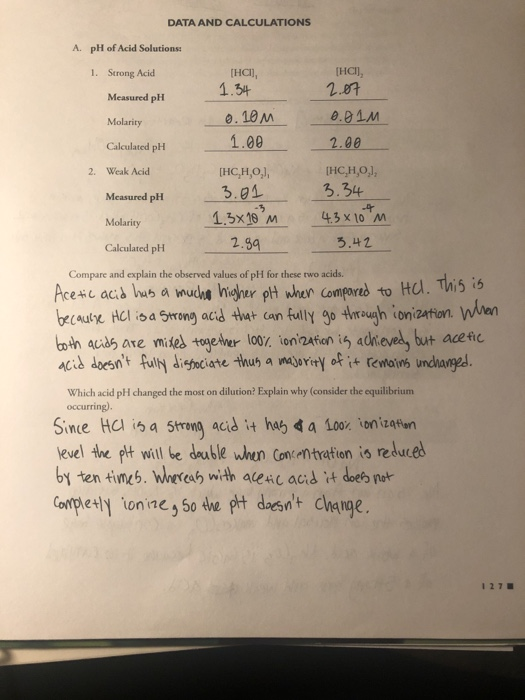 DATA AND CALCULATIONS
A. pH of Acid Solutions:
1. Strong Acid [HCl]₁ [HCl]₂
Measured pH 1.34 2.07
Molarity 0.10M 0.01M
Calculated pH 1.00 2.00
2. Weak Acid [HC₂H₃O₂]₁ [HC₂H₃O₂]₂
Measured pH 3.01 3.34
Molarity 1.3x10⁻³M 4.3x10⁻⁴M
Calculated pH 2.89 3.42
Compare and explain the observed values of pH for these two acids.
Acetic acid has a much higher pH when compared to HCl. This is
because HCl is a strong acid that can fully go through ionization. When
both acids are mixed together 100% ionization is achieved, but acetic
acid doesn't fully dissociate thus a majority of it remains unchanged.
Which acid pH changed the most on dilution? Explain why (consider the equilibrium
occurring).
Since HCl is a strong acid it has a 100% ionization
level the pH will be double when concentration is reduced
by ten times. Whereas with acetic acid it does not
completly ionize, so the pH doesn't change.
127